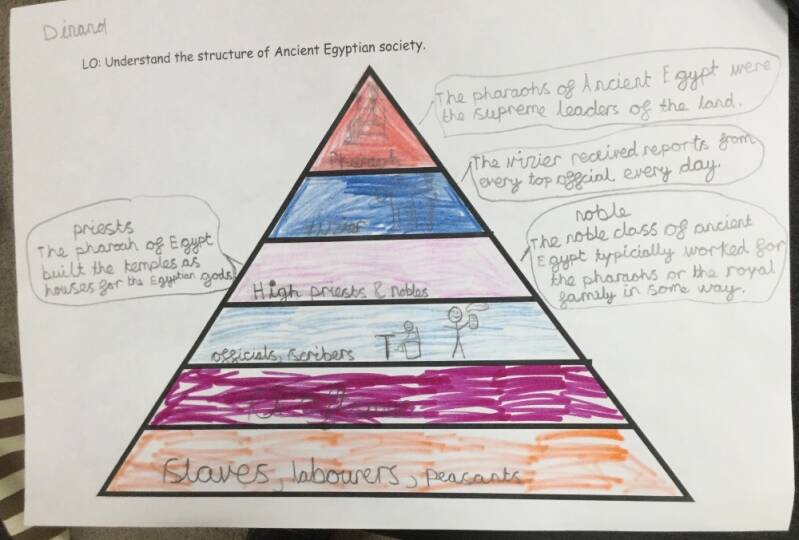 Dinard
LO: Understand the structure of Ancient Egyptian society.
The pharaohs of Ancient Egypt were
the supreme leaders of the land.
Pharaoh
The Vizier received reports from
every top offcial every day.
Vizier
priests
The pharoah of Egypt
built the temples as
houses for the Egyptian gods.
noble
The noble class of ancient
Egypt typicially worked for
the pharaohs or the royal
family in some way.
High priests & nobles
officials, scribers
Slaves, labourers, peasants